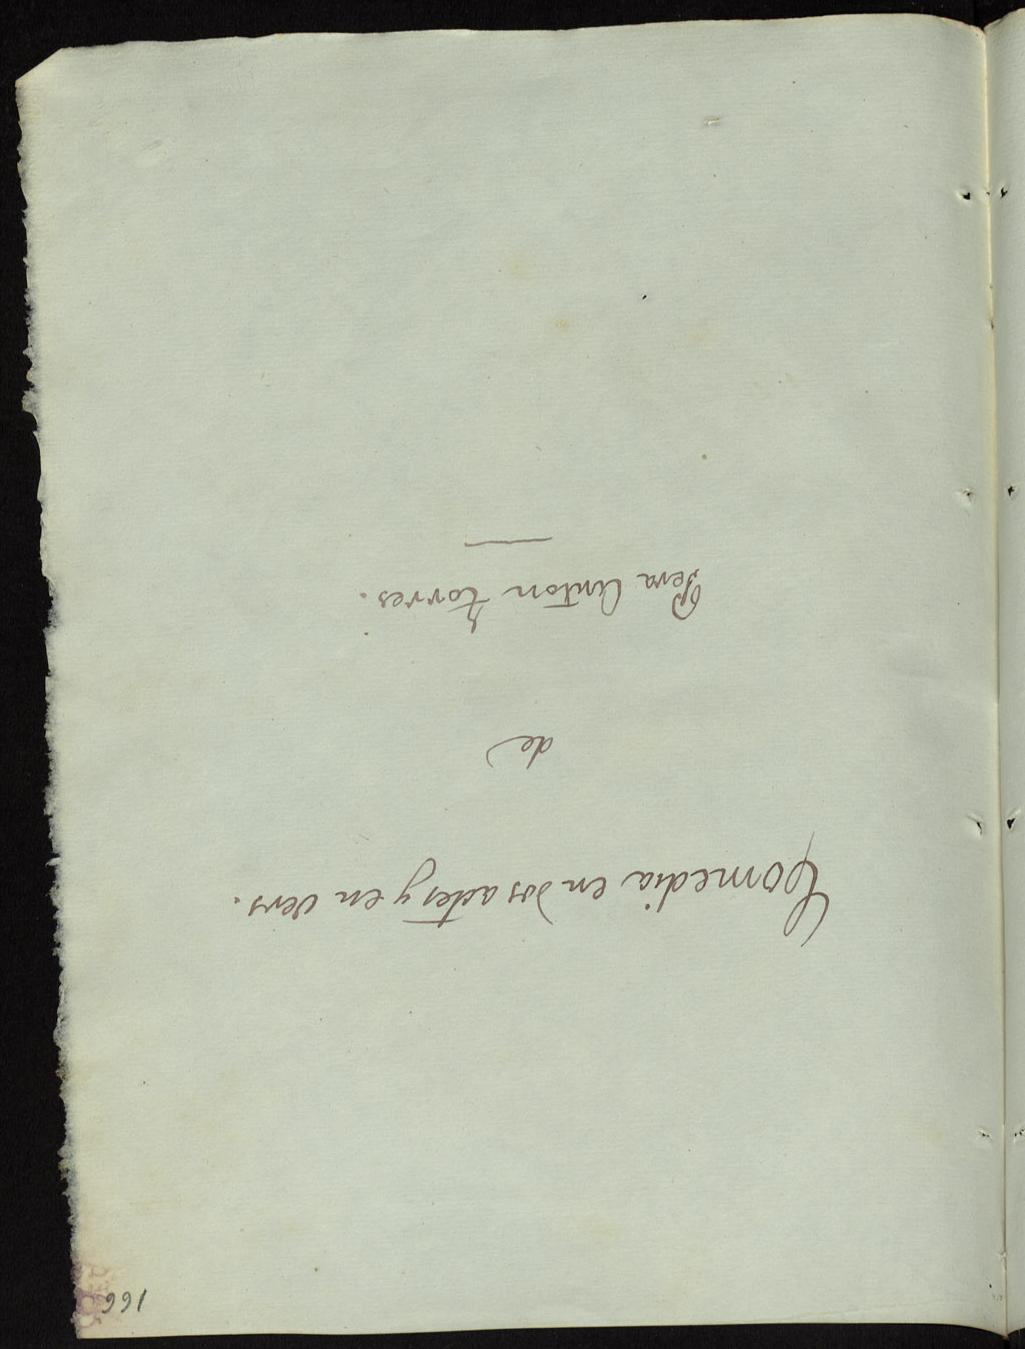 166
Comedia en dos actes y en vers.
de
Pera Anton Torres.